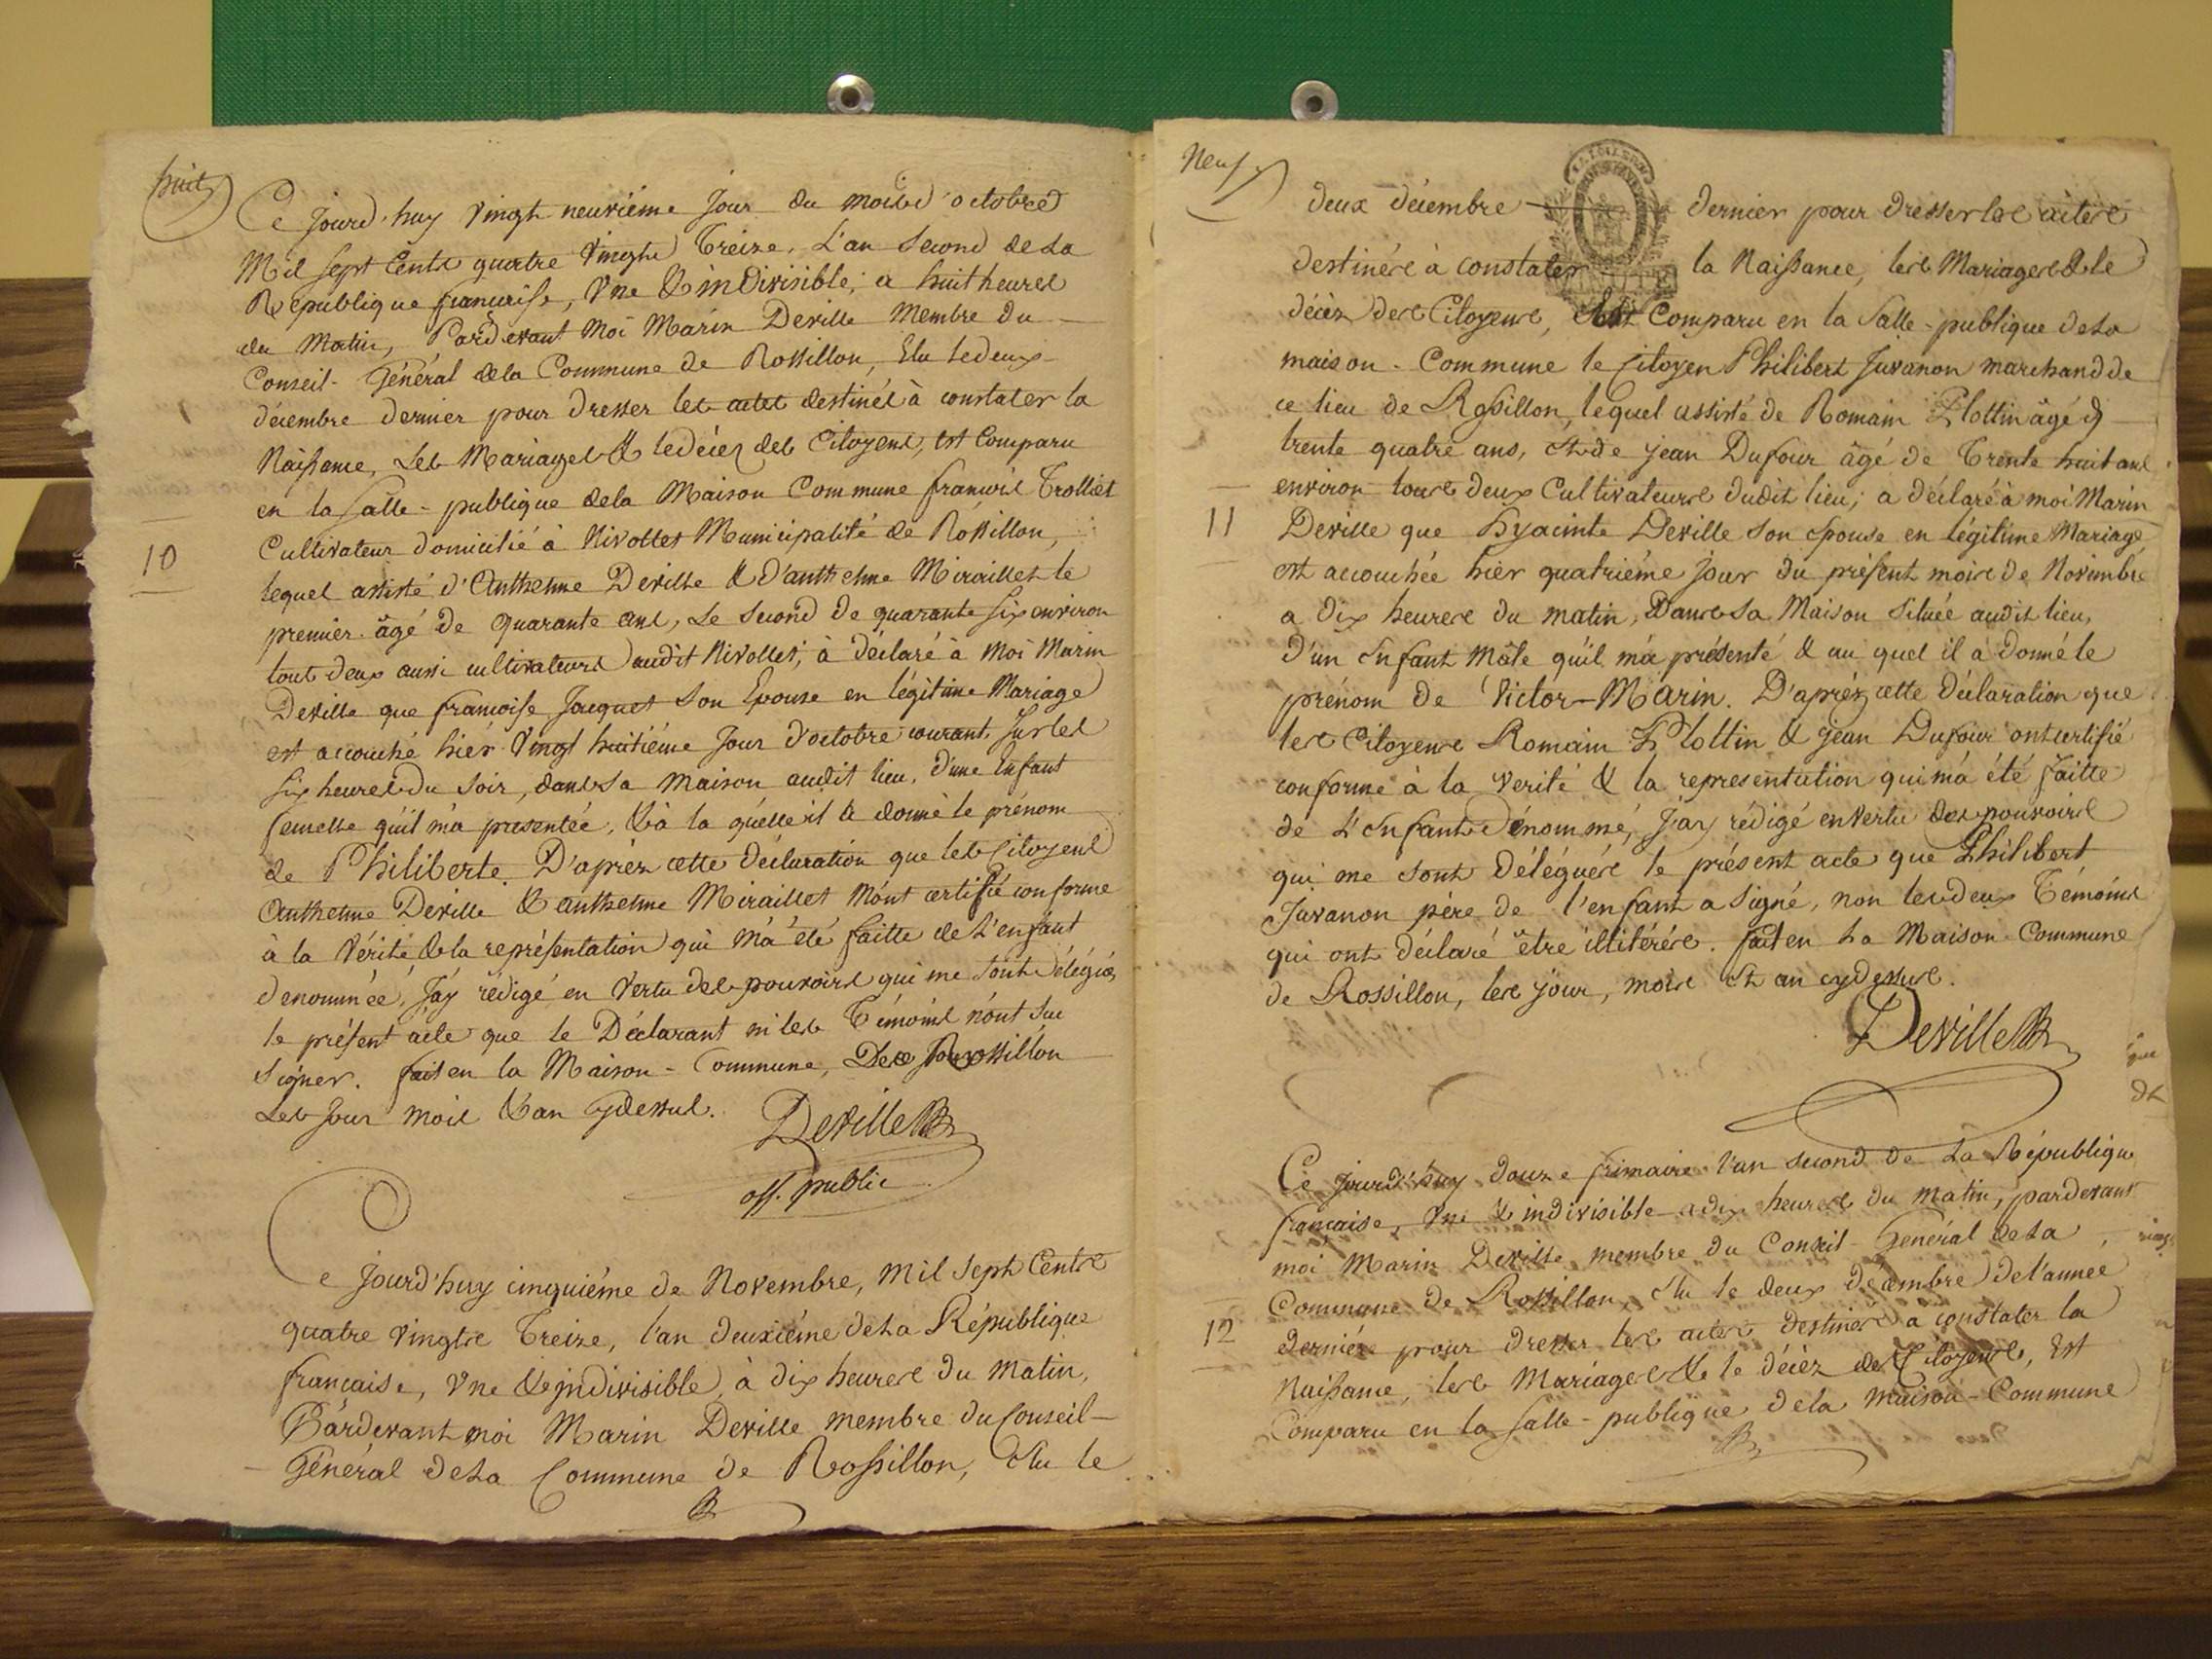 huit
Ce Jourd'huy vingt neuviéme Jour du mois d'octobre
Mil sept Cents quatre Vingts Treize, L'an Second de La
République francaise, Vne & indivisible, a huit heures
du Matin, Pardevant Moi Marin Deville Membre du
Conseil-Général de la Commune de Rossillon, Elu le deux
décembre dernier pour dresser les actes destinés à constater la
Naissance, Les Mariages & le décéz des Citoyens, est Comparu
en la Salle-publique de la Maison Commune francois Trolliet
Cultivateur domicilié à Nivollet Municipalité de Rossillon,
10
lequel assisté d'Anthelme Deville & d'anthelme Miraillet le
premier âgé de quarante ans, Le Second de quarante six environ
tout deux aussi cultivateurs audit Nivollet, à déclaré à Moi Marin
Deville que francoise Jacquet Son Epouse en légitime Mariage
est accouché hier vingt huitiéme Jour d'octobre courant Sur les
six heures du Soir, dans Sa Maison audit lieu, d'une Enfant
femelle qu'il m'a presentée, & à la quelle il a donné le prénom
de Philiberte. D'apréz cette déclaration que les Citoyens
Anthelme Deville & anthelme Miraillet m'ont certifié conforme
à la Vérité & la représentation qui m'a été faitte de L'enfant
denommée, J'ay rédigé en Vertu des pouvoirs qui me sont délégués
le présent acte que le Déclarant ni les Témoins n'ont Su
signer. fait en la Maison-Commune, De Rossillon
Les Jour Mois & an cydessus.
Deville
off. public
Ce Jourd'huy cinquiéme de Novembre, mil Sept Cents
quatre vingts Treize, l'an deuxiéme de La République
francaise, Vne & indivisible, à dix heures du Matin,
Pardevant moi Marin Deville membre du Conseil-
Général de La Commune de Rossillon, élu le
Neuf
deux décembre dernier pour dresser les actes
destinés à constater la Naissance, les Mariages & le
décéz des Citoyens, Est Comparu en la Salle-publique de La
maison-Commune le Citoyen Philibert Juvanon marchand de
ce lieu de Rossillon, lequel assisté de Romain Plottin âgé d
trente quatre ans, et de jean Dufour âgé de Trente huit ans
environ tous deux Cultivateurs dudit lieu; a déclaré à moi Marin
11
Deville que hyacinte Deville son épouse en légitime Mariage
est accouchée hier quatriéme jour du présent mois de Novembre
a dix heures du matin, Dans Sa Maison Située audit lieu,
d'un Enfant Mâle qu'il m'a présenté & au quel il à donné le
prénom de Victor-Marin. D'apréz cette déclaration que
les Citoyens Romain Plottin & jean Dufour ont certifié
conforme à la verité & la representation qui m'a été faitte
de L'Enfant dénommé, j'ay rédigé en vertu des pouvoirs
qui me sont délégués le présent acte que Philibert
Juvanon père de l'enfant a signé, non les deux Témoins
qui ont déclaré être illitérés. fait en La Maison Commune
de Rossillon, les jour, mois et an cydessus.
Deville
Ce jourd'huy douze frimaire l'an second de La République
francaise, Vne & indivisible a dix heures du Matin, pardevant
moi Marin Deville membre du Conseil-Général de La
Commune de Rossillon, élu le deux décembre de l'année
12
derniére pour dresser les actes destinés a constater la
Naissance, les Mariages & le décéz des Citoyens, Est
Comparu en la Salle-publique de la Maison-Commune